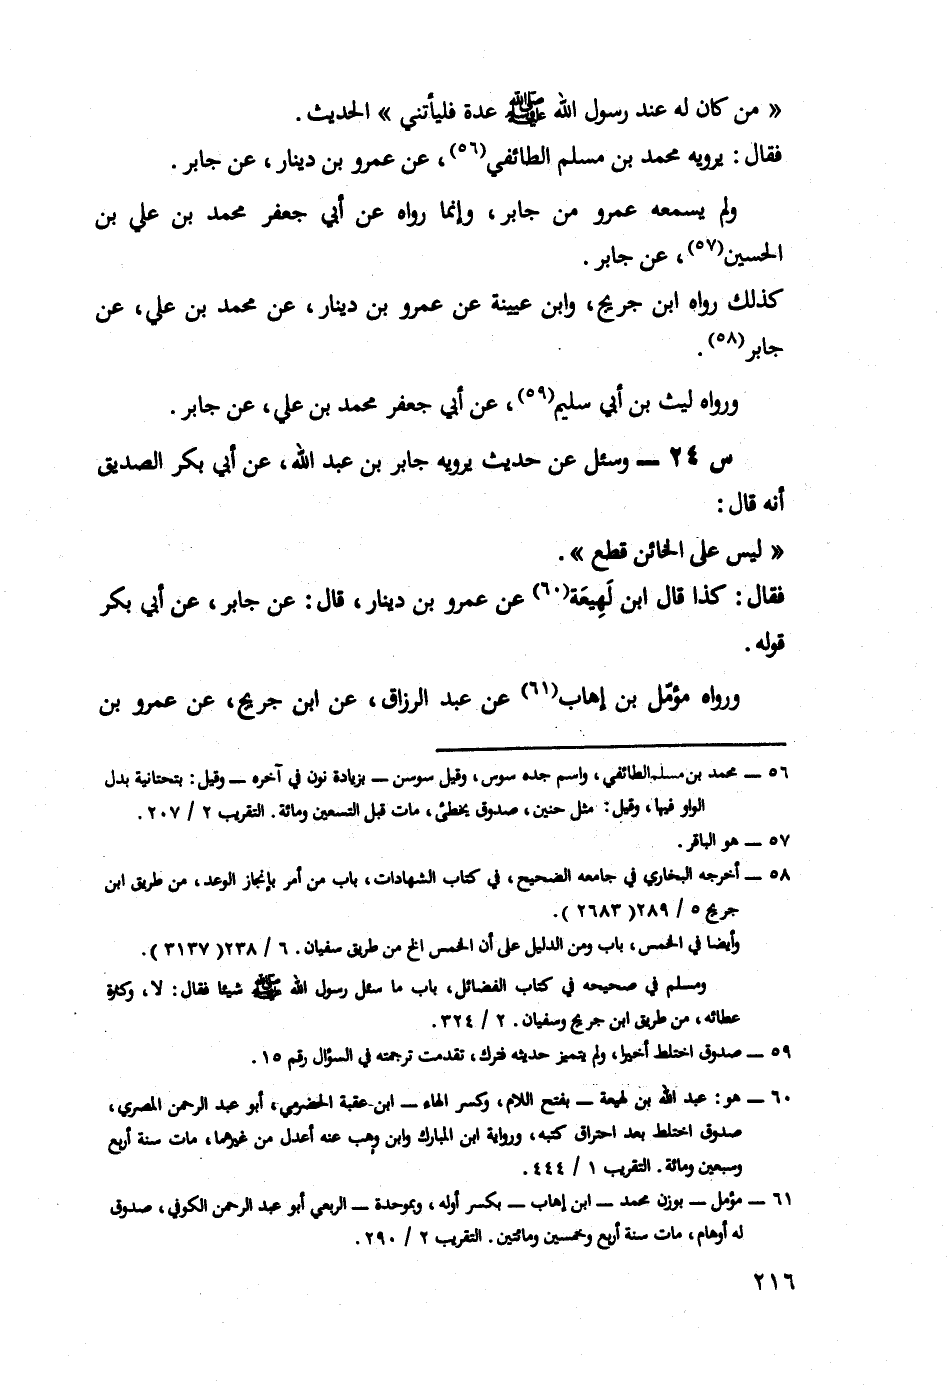 « من كان له عند رسول الله ﷺ عدة فليأتني » الحديث .
فقال : يرويه محمد بن مسلم الطائفي(٥٦) ، عن عمرو بن دينار ، عن جابر .
ولم يسمعه عمرو من جابر ، وإنما رواه عن أبي جعفر محمد بن علي بن
الحسين(٥٧) ، عن جابر .
كذلك رواه ابن جريج ، وابن عيينة عن عمرو بن دينار ، عن محمد بن علي ، عن
جابر(٥٨) .
ورواه ليث بن أبي سليم(٥٩) ، عن أبي جعفر محمد بن علي ، عن جابر .
س ٢٤ ــ وسئل عن حديث يرويه جابر بن عبد الله ، عن أبي بكر الصديق
أنه قال :
« ليس على الخائن قطع » .
فقال : كذا قال ابن لَهِيعَة(٦٠) عن عمرو بن دينار ، قال : عن جابر ، عن أبي بكر
قوله .
ورواه مؤمّل بن إهاب(٦١) عن عبد الرزاق ، عن ابن جريج ، عن عمرو بن
٥٦ ــ محمد بن مسلم الطائفي ، واسم جده سوس ، وقيل سوسن ــ بزيادة نون في آخره ــ وقيل : بتحتانية بدل
الواو فيها ، وقيل : مثل حنين ، صدوق يخطئ ، مات قبل التسعين ومائة . التقريب ٢ / ٢٠٧ .
٥٧ ــ هو الباقر .
٥٨ ــ أخرجه البخاري في جامعه الصحيح ، في كتاب الشهادات ، باب من أمر بإنجاز الوعد ، من طريق ابن
جريج ٥ / ٢٨٩( ٢٦٨٣ ) .
وأيضا في الخمس ، باب ومن الدليل على أن الخمس الخ من طريق سفيان . ٦ / ٢٣٨( ٣١٣٧ ) .
ومسلم في صحيحه في كتاب الفضائل ، باب ما سئل رسول الله ﷺ شيئا فقال : لا ، وكثرة
عطائه ، من طريق ابن جريج وسفيان . ٢ / ٣٢٤ .
٥٩ ــ صدوق اختلط أخيرا ، ولم يتميز حديثه فترك ، تقدمت ترجمته في السؤال رقم ١٥ .
٦٠ ــ هو : عبد الله بن لهيعة ــ بفتح اللام ، وكسر الهاء ــ ابن عقبة الحضرمي ، أبو عبد الرحمن المصري ،
صدوق اختلط بعد احتراق كتبه ، ورواية ابن المبارك وابن وهب عنه أعدل من غيرهما ، مات سنة أربع
وسبعين ومائة . التقريب ١ / ٤٤٤ .
٦١ ــ مؤمل ــ بوزن محمد ــ ابن إهاب ــ بكسر أوله ، وبموحدة ــ الربعي أبو عبد الرحمن الكوفي ، صدوق
له أوهام ، مات سنة أربع وخمسين ومائتين . التقريب ٢ / ٢٩٠ .
٢١٦